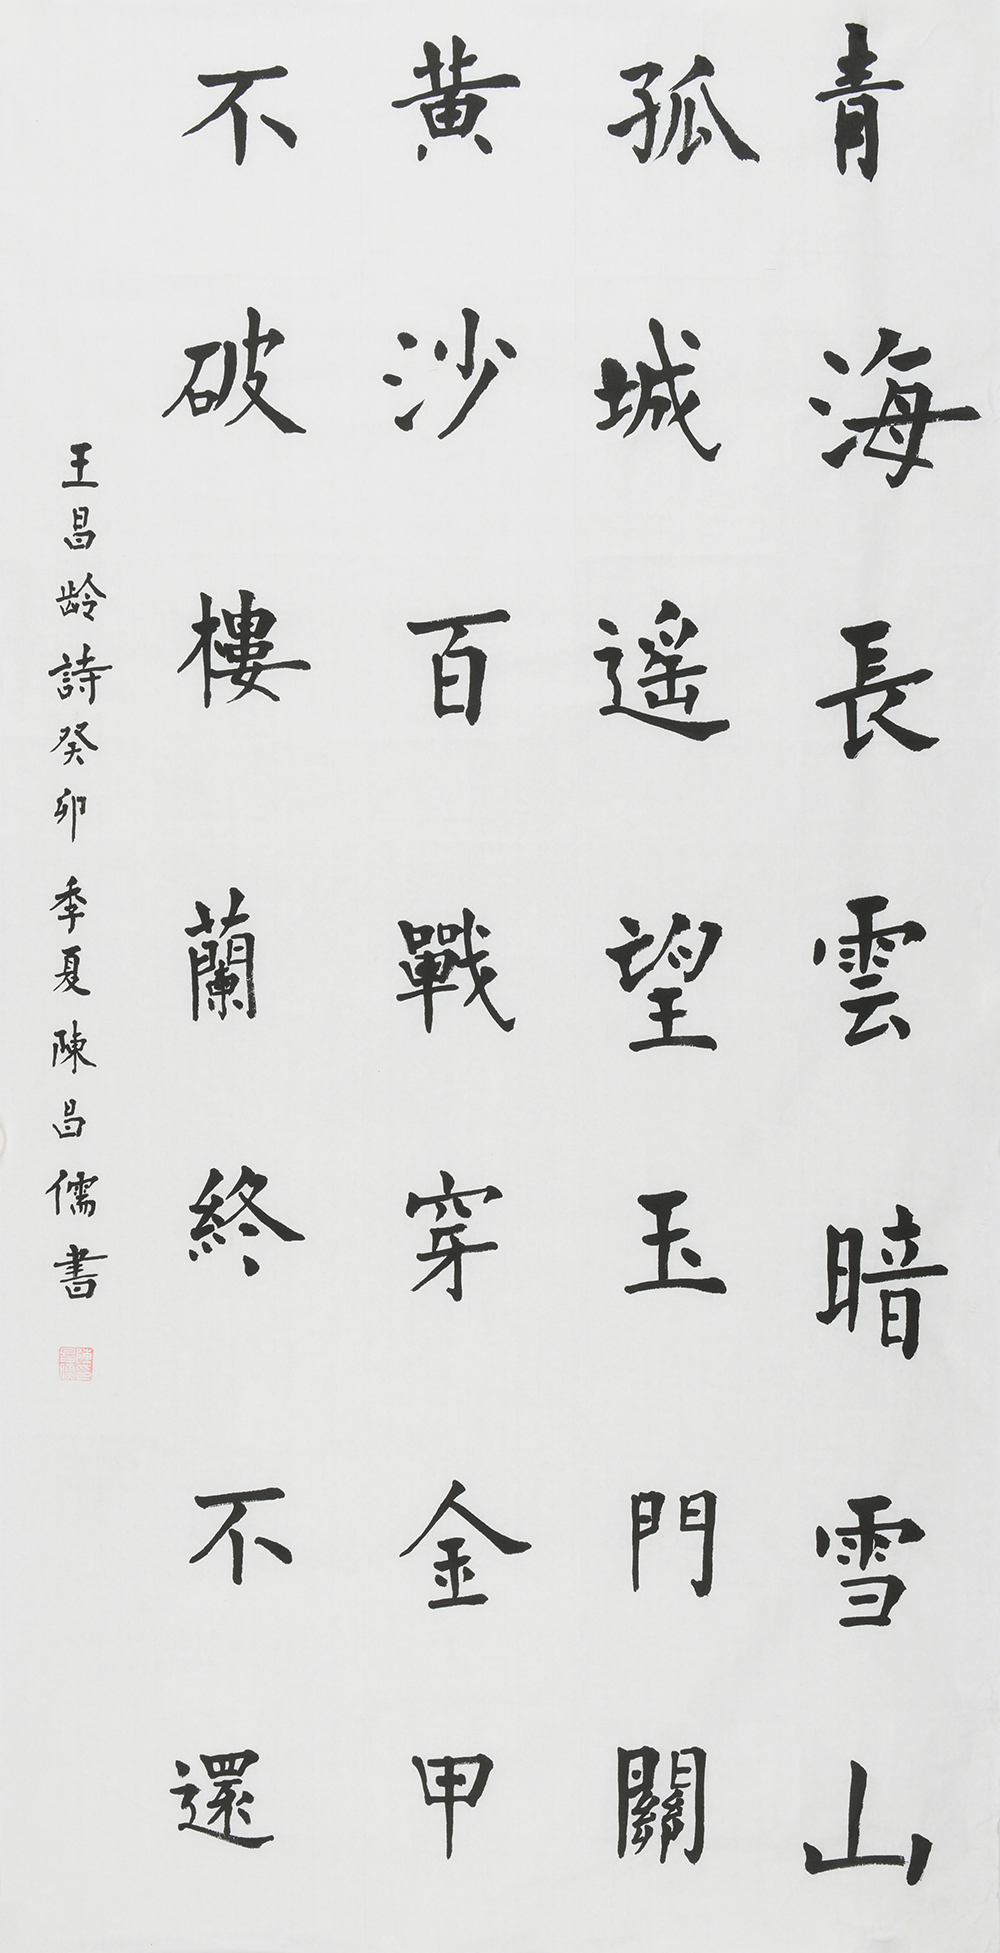 青海長雲暗雪山
孤城遥望玉門關
黄沙百戰穿金甲
不破樓蘭終不還
王昌齡詩癸卯季夏陳昌儒書